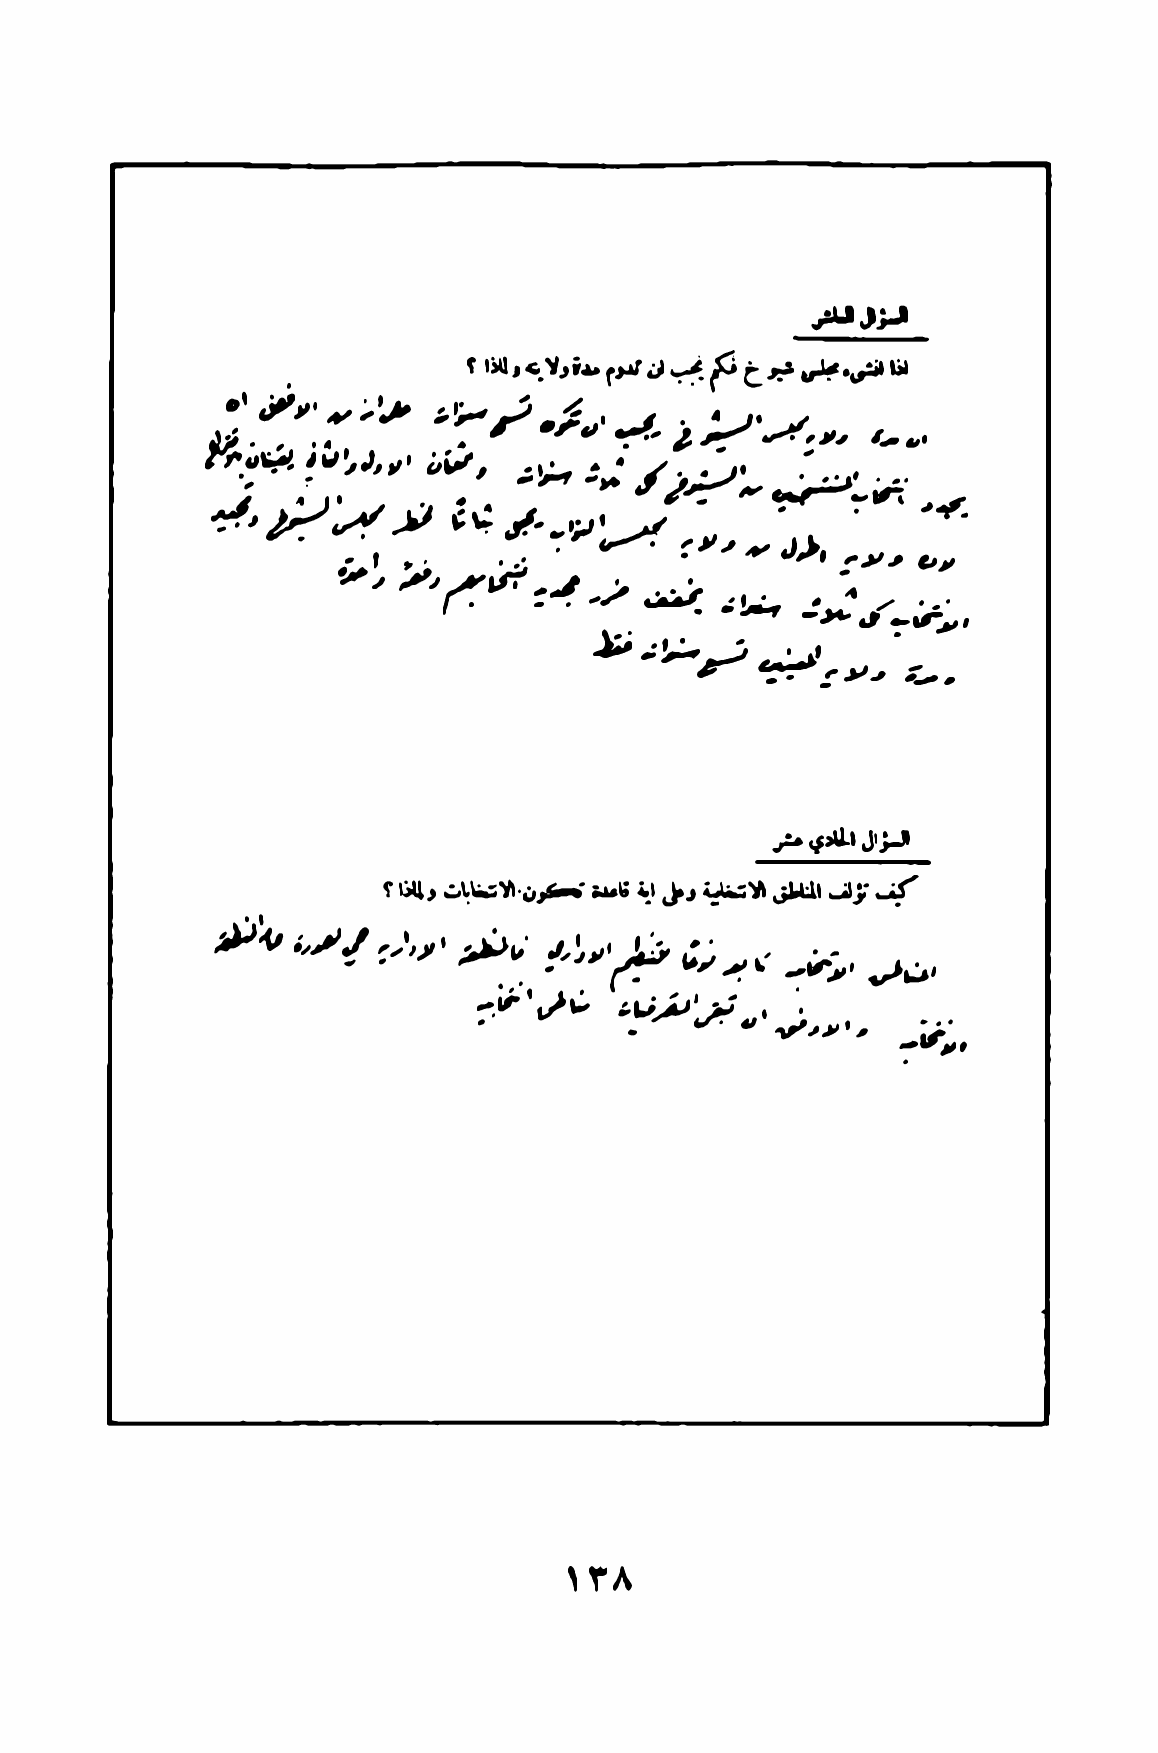 السؤال العاشر
اذا انشىء مجلس شيوخ فكم يجب ان تدوم مدة ولايته ولماذا ؟
ان مدة ولاية مجلس الشيوخ يجب ان تكون تسع سنوات على انه من الافضل ان
يجدد انتخاب المنتخبين من الشيوخ كل ثلاث سنوات الاول والثاني
لان ولاية اطول من ولاية مجلس النواب تجعل ثباتًا لخطط مجلس الشيوخ وتجديد
الانتخاب كل ثلاث سنوات يخفف ضرر تجديد انتخابهم دفعة واحدة
ومدة ولاية المعينين تسع سنوات فقط
السؤال الحادي عشر
كيف تؤلف المناطق الانتخابية وعلى اية قاعدة تكون الانتخابات ولماذا ؟
المناطق الانتخابية تابعة نوعًا للتنظيم الاداري فالمنطقة الادارية هي بالصورة المنطقة
الانتخابية والاوفق ان تبقى المتصرفيات مناطق انتخابية
١٣٨